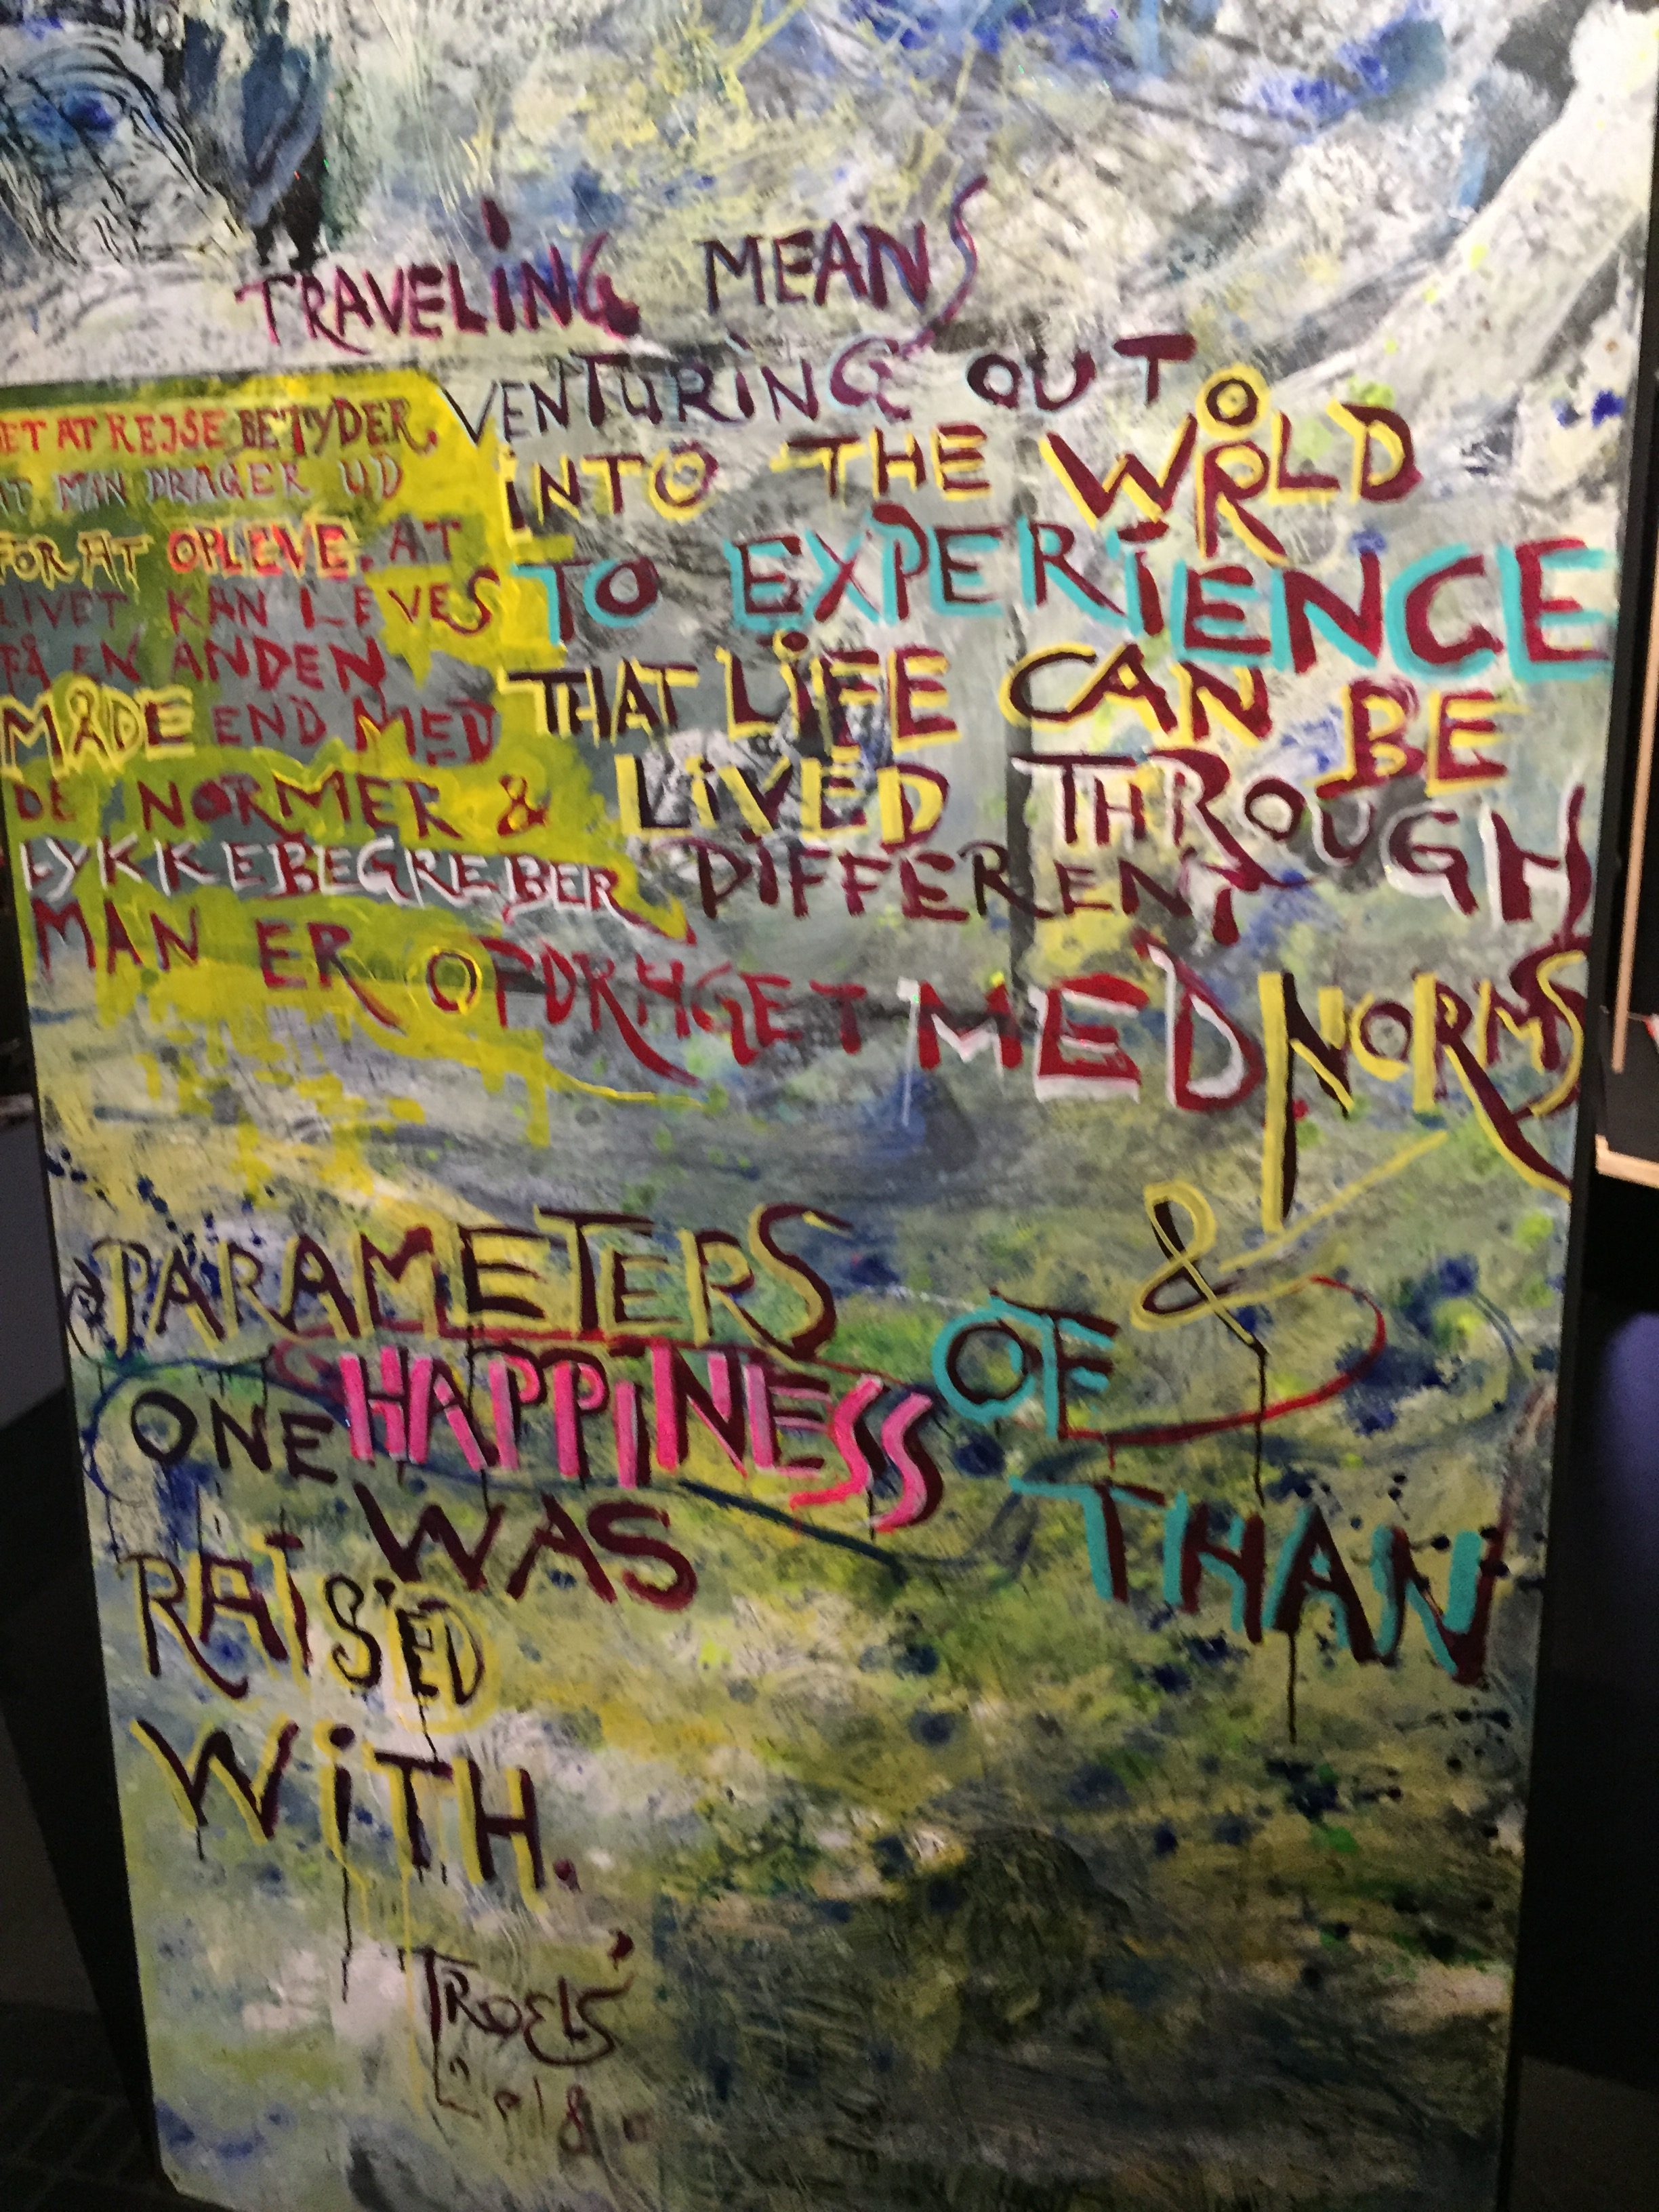 TRAVELING MEANS
VENTURING OUT
INTO THE WORLD
TO EXPERIENCE
THAT LIFE CAN BE
LIVED THROUGH
DIFFERENT
NORMS
&
PARAMETERS
OF
HAPPINESS
THAN
ONE
WAS
RAISED
WITH.
ET AT REJSE BETYDER,
AT MAN DRAGER UD
FOR AT OPLEVE, AT
LIVET KAN LEVES
PÅ EN ANDEN
MÅDE END MED
DE NORMER &
LYKKEBEGREBER
MAN ER OPDRAGET MED
TROELS